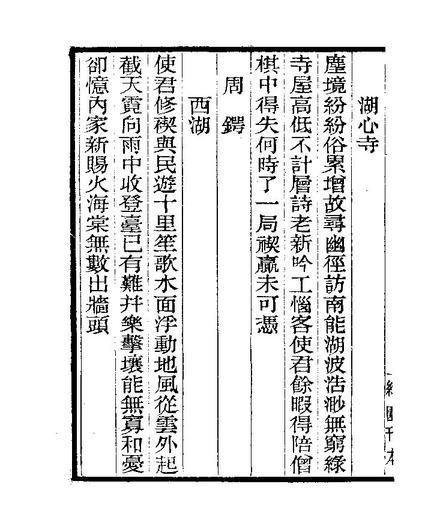 湖心寺
塵境紛紛俗累增故尋幽徑訪南能湖波浩渺無窮綠
寺屋高低不計層詩老新吟工惱客使君餘暇得陪僧
棋中得失何時了一局禊贏未可憑
周鍔
西湖
使君修禊與民遊十里笙歌水面浮動地風從雲外起
截天霓向雨中收登臺已有難并樂擊壤能無寡和憂
卻憶內家新賜火海棠無數出牆頭